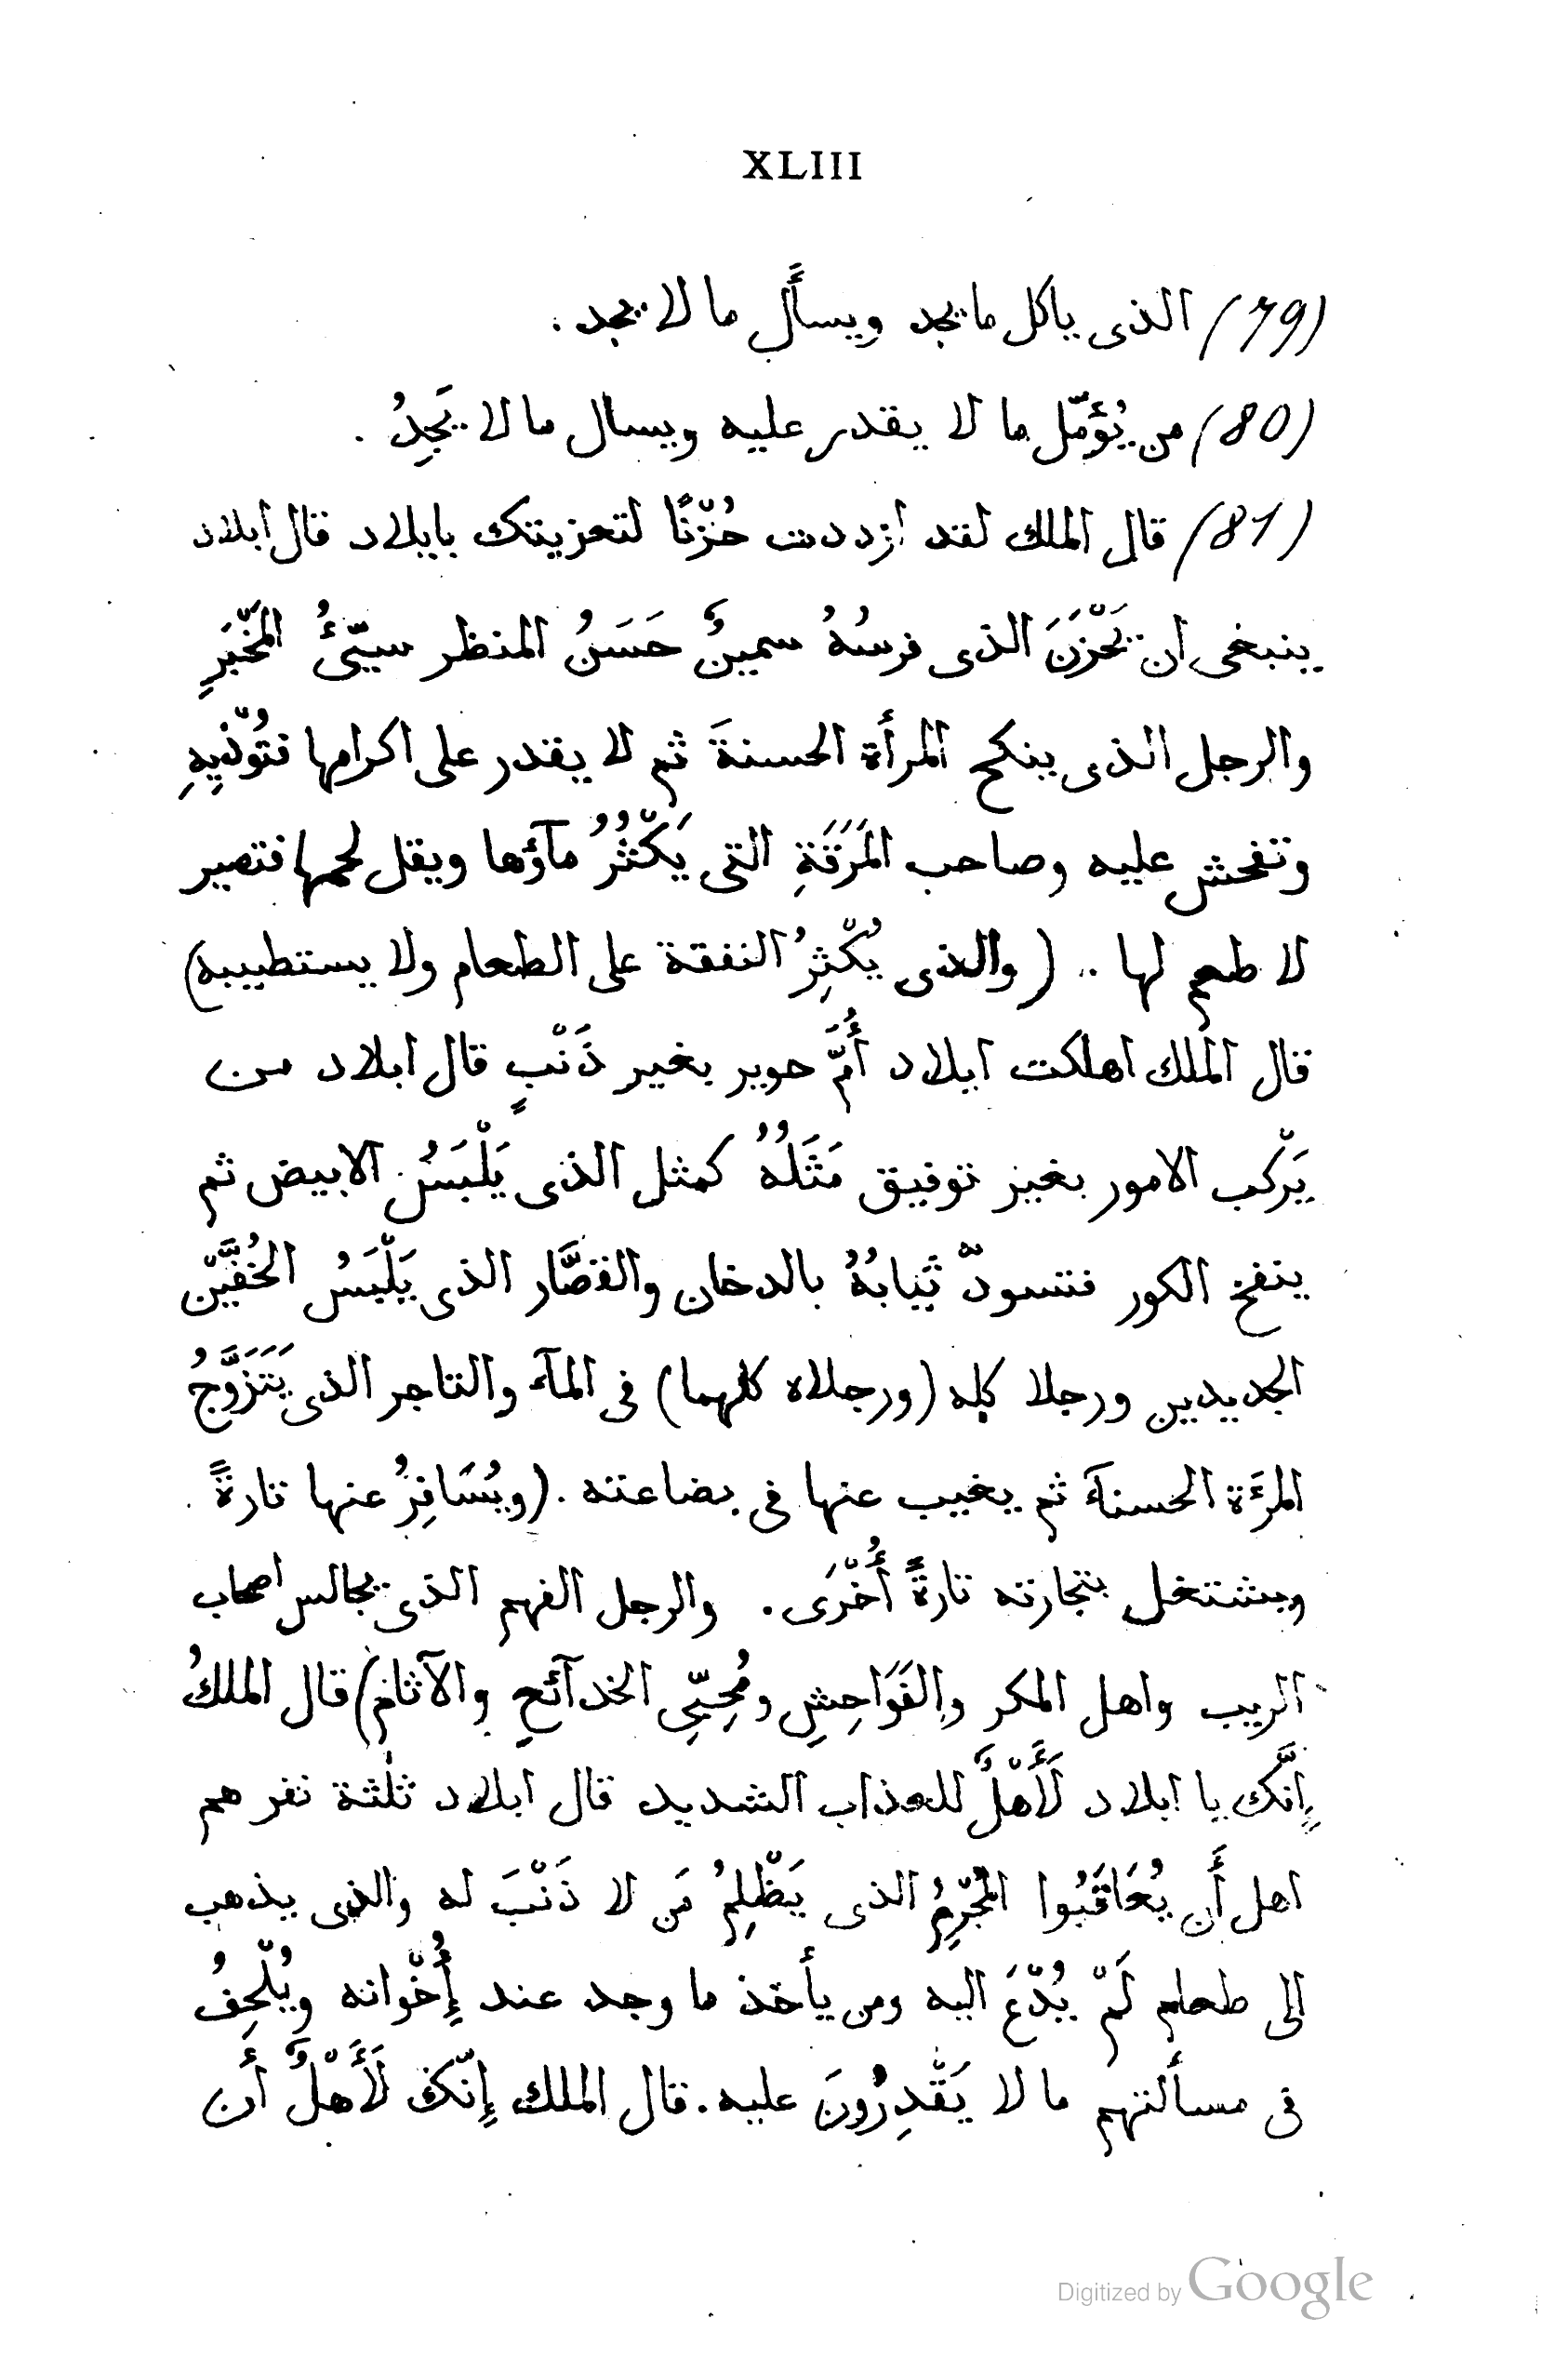 XLIII
(79) الذى ياكل ما يجد ويسأَل ما لا يجد .
(80) من يُؤمّل ما لا يقدر عليه ويسال ما لا يَجِدُ .
(81) قال الملك لقد ازددت حُزْنًا لتعزيتك بابلاد قال ابلاد
ينبغى ان يَحْزَنَ الذى فرسُهُ سمينٌ حَسَنُ المنظر سيّئُ المَخْبَرِ
والرجل الذى ينكح المرأة الحسنةَ ثم لا يقدر على اكرامها فتُوْذيِهِ
وتفحش عليه وصاحب المَرَقَةِ التى يَكْثُرُ مآؤها ويقل لحمها فتصير
لا طعم لها .. (والذى يُكْثِرُ النفقة على الطعام ولا يستطيبه)
قال الملك اهلكت ابلاد أُمَّ حوير بغير ذَنْبٍ قال ابلاد من
يَرْكب الامور بغير توفيق مَثَلُهُ كمثل الذى يَلْبَسُ الابيض ثم
ينفخ الكور فتسودّ ثيابُهُ بالدخان والقصَّار الذى يَلْبَسُ الخُفَّيْن
الجديدين ورجلا كله (ورجلاه كلهما) فى المآء والتاجر الذى يَتَزَوَّجُ
المرءَة الحسنآء ثم يغيب عنها فى بضاعته . (ويُسَافِرُ عنها تارةً .
ويشتغل بتجارته تارةً أُخْرَى . والرجل الفهم الذى يجالس اصحاب
الريب واهل المكر والفَوَاحِشِ ومُحِبِّى الخدآئحِ والآثام) قال الملكُ
إنَّك يا ابلاد لَأَهْلٌ للعذاب الشديد قال ابلاد ثلٰثة نفر هم
اهل أَن يُعَاقَبُوا المُجْرِمُ الذى يَظْلِمُ مَن لا ذَنْبَ له والذى يذهب
الى طعام لَمْ يُدْعَ اليه ومن يأخذ ما وجد عند إُخْوانه ويُلْحِفُ
فى مسألتهم ما لا يَقْدِرُونَ عليه . قال الملك إنّكَ لَأَهْلٌ أَن
Digitized by Google